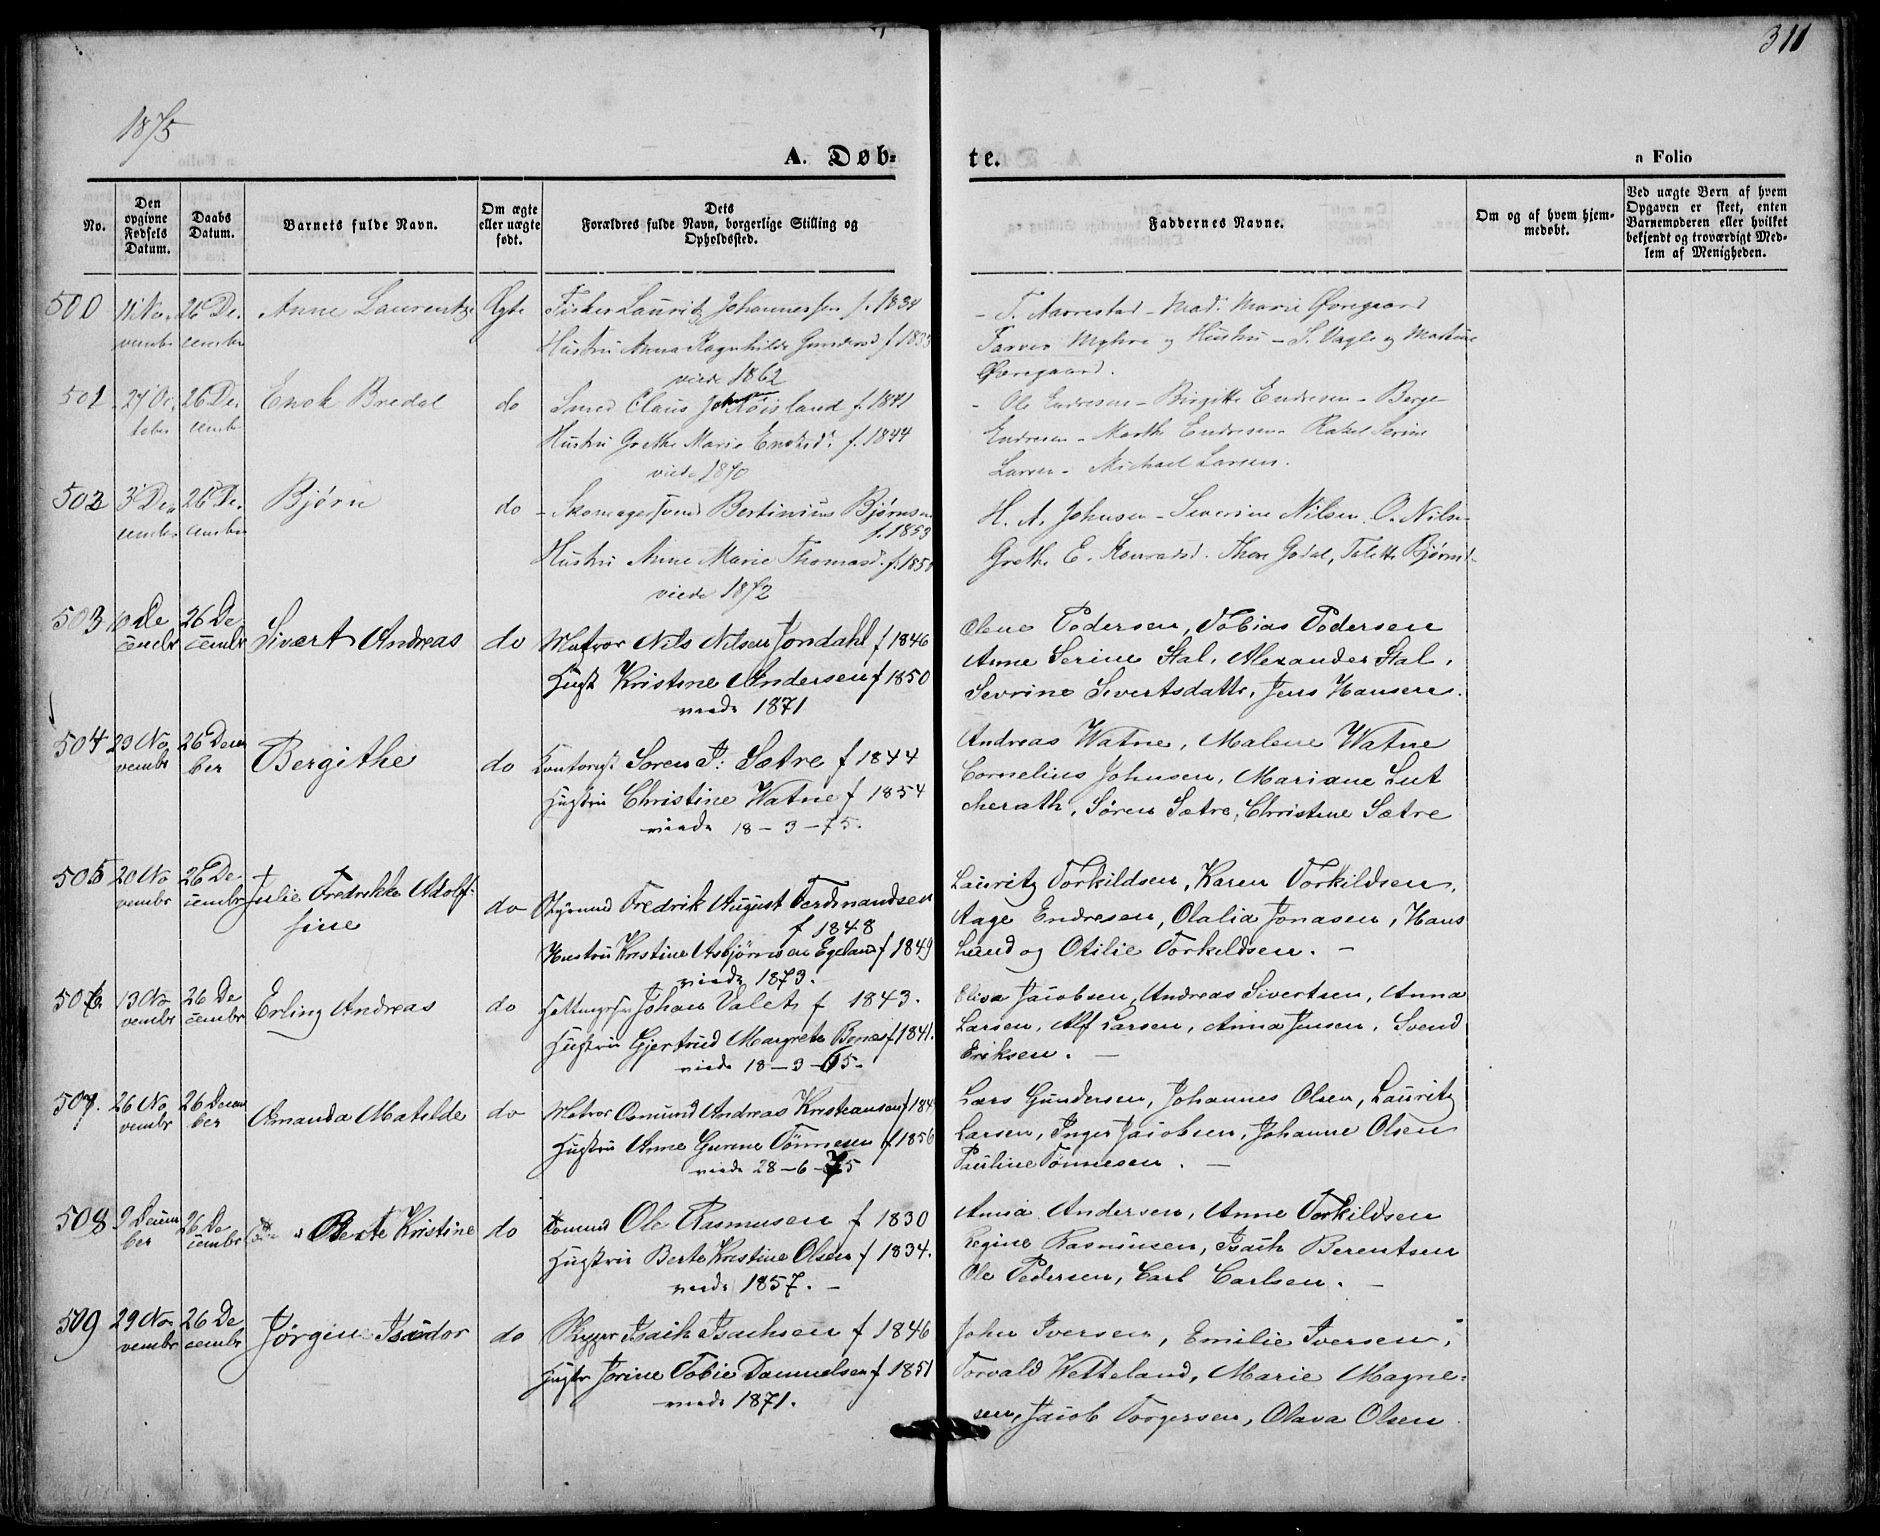 311
1875
A. Døb-
te.
a Folio
No.
Den opgivne Fødsels Datum.
Daabs Datum.
Barnets fulde Navn.
Om ægte eller uægte født.
Dets Forældres fulde Navn, borgerlige Stilling og Opholdssted.
Faddernes Navne.
Om og af hvem hjemmedøbt.
Ved uægte Børn af hvem Opgaven er skeet, enten Barnemoderen eller hvilket bekjendt og troværdigt Medlem af Menigheden.
500 11 November 26 December Anne Laurentze Ægte Fisker Lauritz Johannessen f. 1834
Hustru Anna Ragnhilde Gundersd f 1833
viede 1862
- T. Aarrestad - Mad. Marie Øvregaard
Farver Myhre og Hustru - S. Vagle og Martine
Øvregaard.
501 27 October 26 December Enok Bredal do Smed Claus Johnsen Røisland f. 1841
Hustru Grethe Marie Enoksd. f. 1844
viede 1870
- Ole Endresen - Birgitte Endresen - Berge
Endresen - Marthe Endresen Rakel Serine
Larsen - Michael Larsen.
502 3 December 26 December Bjørn do - Skomagersvend Bertinius Bjørnsen
f. 1853
Hustru Anne Marie Thomasd. f. 1850
viede 1872
H. A. Johnsen - Severine Nilsen. O. Nilsen
Grethe E. Konradsd. Thore Godal, Talette Bjørnsd.
503 10 December 26 December Sivert Andreas do Matros Nils Nilsen Jondahl f 1846
Hust Kristine Andersen f 1850
viede 1871
Olene Pedersen, Tobias Pedersen
Anne Serine Stal, Alexander Stal,
Sevrine Sivertsdattr, Jens Hansen.
504 23 November 26 December Bergithe do Kontorist Søren J: Sætre f 1844
Hustru Christine Watne f 1854
viede 18-3-75.
Andreas Watne, Malene Watne
Cornelius Johnsen, Mariane Lut
cherath, Søren Sætre, Christine Sætre
505 20 November 26 December Julie Fredrikke Adolf-
sine do Styrmd Fredrik August Ferdinandsen
f 1848
Hustru Kristine Asbjørnsen Egeland f 1849
viede 1873.
Lauritz Torkildsen, Karen Torkildsen,
Aage Endresen, Olalia Jonasen, Hans
Lund og Otilie Torkildsen. -
506 13 November 26 December Erling Andreas do Johan Valet f 1843.
Hustru Gjertrud Margrete Benes f 1841.
viede 18-3-65-
Elisa Jacobsen, Andreas Sivertsen, Anna
Larsen, Alf Larsen, Anna Jensen, Svend
Eriksen. -
507. 26 November 26 December Amanda Matilde do Matros Osmund Andreas Kristiansen f 184
Hustru Anne Gurine Tønnesen f 1856
viede 28-6-75
Lars Gundersen, Johannes Olsen, Lauritz
Larsen, Inger Jacobsen, Johanne Olsen
Pauline Tønnesen. -
508 9 December 26 December Berte Kristine do Ole Rasmusen f 1830
Hustru Berte Kristine Olsen f 1834.
viede 1857. -
Anna Andersen, Anne Torkildsen
Regine Rasmusen, Isaik Berentsen
Ole Pedersen, Carl Carlsen. -
509 29 November 26 December Jørgen Isador do Skipper Isaik Isachsen f 1846
Hustr Jorine Tobie Danielsen f 1851
viede 1871.
John Iversen, Emilie Iversen,
Torvald Wetteland, Marie Magne-
sen, Jacob Torgersen, Olava Olsen